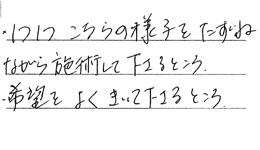 ・1つ1つ こちらの様子を たずね
ながら施術して下さるところ.
・希望を よく きいて下さるところ.